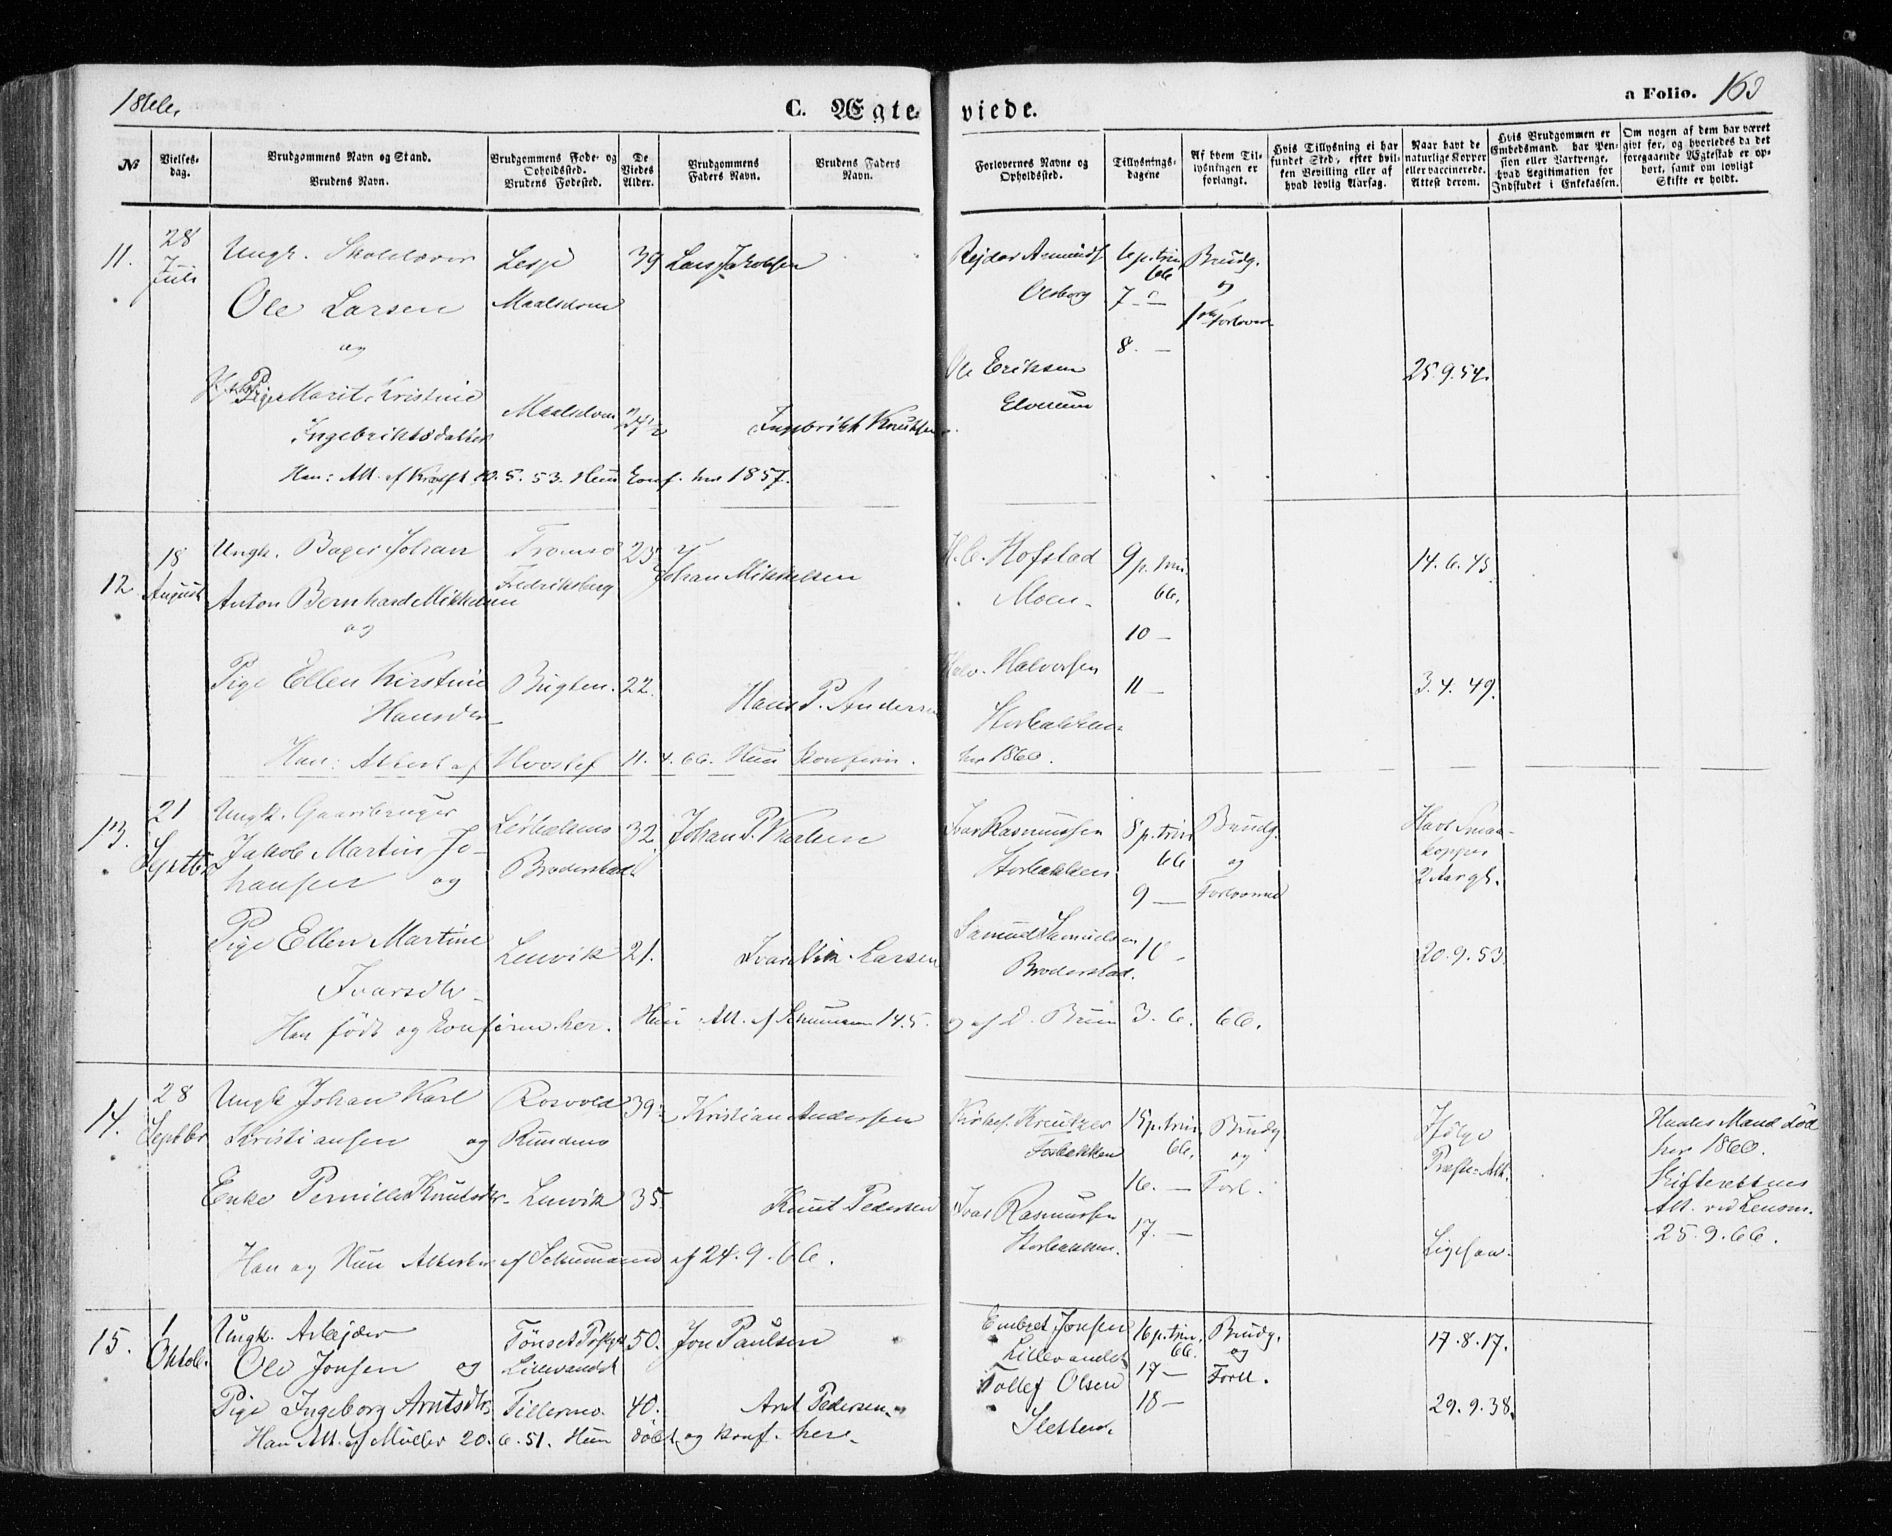 1866.
C. Ægteviede.
a Folio. 163
№
Vielses-dag.
Brudgommens Navn og Stand.
Brudens Navn.
Brudgommens Føde- og Opholdssted.
Brudens Fødested.
De Viedes Alder.
Brudgommens Faders Navn.
Brudens Faders Navn.
Forlovernes Navne og Opholdssted.
Tillysnings-dagene
Af hvem Tillysningen er forlangt.
Hvis Tillysning ei har fundet Sted, efter hvilken Bevilling eller af hvad lovlig Aarsag.
Naar havt de naturlige Kopper eller vaccinerede. Attest derom.
Hvis Brudgommen er Embedsmand, har Pension eller Vartpenge, hvad Legitimation for Indskudet i Enkekassen.
Om nogen af dem har været givt før, og hvorledes da det foregaaende Ægteskab er ophørt, samt om lovligt Skifte er holdt.
11. 28 Juli Ungk. Skolelærer Lesje 39 Lars Jakobsen Rejdar Amunds. 6 p. trin. 66 Brudg.
Ole Larsen Maalsdoven Olsborg 7 - og 1ste Forlover
og 8. -
Pige Marit Kristine Maalsdoven 24 1/2 Ingebrikt Knudsen Ole Eriksen 25.9.54.
Ingebriktsdatter Elverum
Han: Att. af Kraft 10.5.53. Hun Conf. her 1857.
12. 18 August Ungk. Bager Johan Tromsø 25 Johan Mikkelsen Hofstad 9 p. trin. 66. 14.6.43.
Anton Bernhard Mikkelsen Fredriksberg Moen.
og 10 -
Pige Ellen Kirstine Bugten. 22. Hans P. Andersen Halv. Halversen 11 - 3.4.49.
Hansdtr. Storbakken
Han: Attest af Hvoslef 11.4.66. Hun Konfirm. her 1860.
13. 21 Septbr. Ungk. Gaardbruger 32. Johan P. Karlsen Ivar Rasmussen 8 p. trin 66 Brudg. Havt Smaa-
Jakob Martin Jo- Broderstad. Storbakken og kopper
hansen og 9 - Forloverne 2 Aar gl.
Pige Ellen Martine Lenvik 21. Ivar Nik. Larsen Samuel Samuelsen 10 - 20.9.53.
Ivarsdtr. Broderstad.
Han født og konfirm. her. Hun Att. af Schumann 14.5. og af D. Bruun 3.6.66.
14. 28 Septbr Ungk Johan Karl Rosvold 39 Kristian Andersen Kreutzer 15 p. trin. 66. Brudg Ifølge Hendes Mand død
Kristiansen og Rundmo Forbakken og Præste-Att. her 1860.
Enke Pernille Knutsdtr. Lenvik 35. Knut Pedersen Ivar Rasmussen 16. - Forl. Skifterettens
Storbakken. 17. - Ligesaa. Att. ved Lensm.
25.9.66.
Han og Hun Attester af Schumann af 24.9.66.
15. 1 Oktob. Ungk. Arbejder Tønset Præstgd 50. Jon Paulsen Embret Jonsen 16 p. trin. 66. Brudg. 17.8.17.
Ole Jonsen og Lillevandet Lillevandet 17 - og
Pige Ingeborg Arntsdtr. Tillermo. 40. Arnt Pedersen Tollef Olsen 18 - Forl. 29.9.38.
Sletten.
Han Att. af Müller 20.6.51. Hun døbt og konf. her.